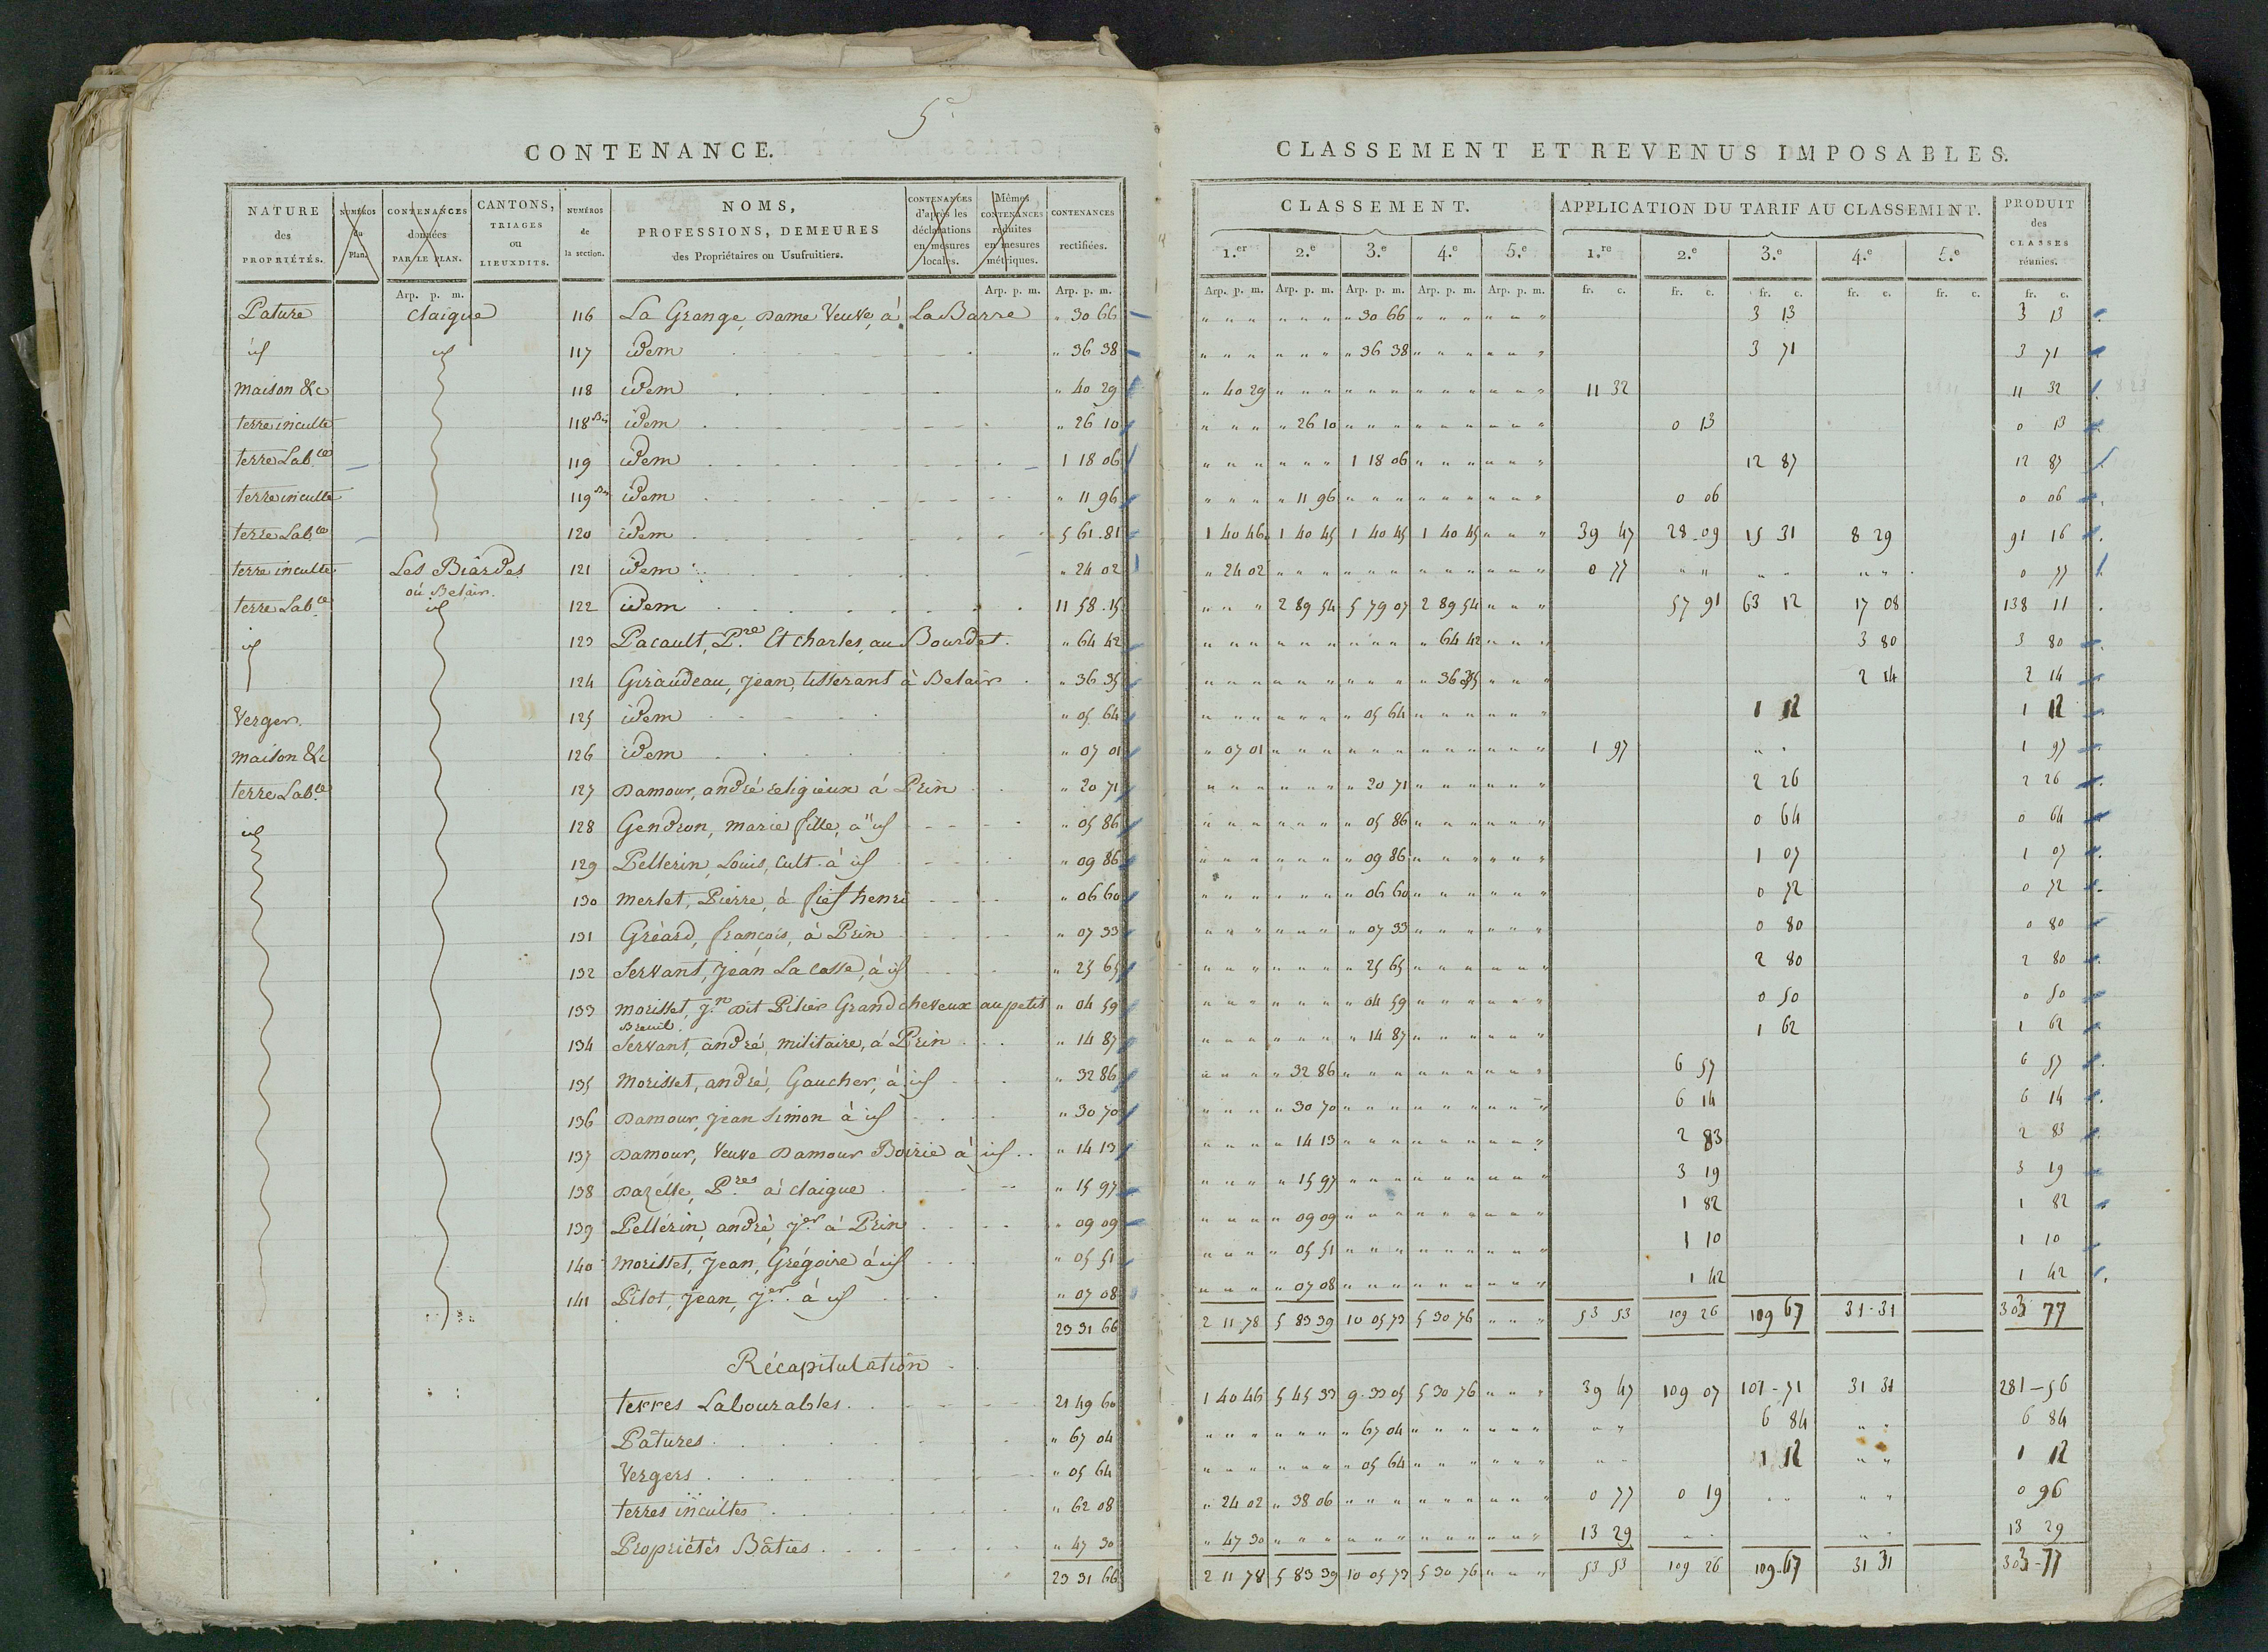 5.
CONTENANCE.
NATURE des PROPRIÉTÉS. | NUMÉROS du Plan. | CONTENANCES données PAR LE PLAN. | CANTONS, TRIAGES ou LIEUXDITS. | NUMÉROS de la section. | NOMS, PROFESSIONS, DEMEURES des Propriétaires ou Usufruitiers. | CONTENANCES d'après les déclarations en mesures locales. | Mêmes CONTENANCES réduites en mesures métriques. | CONTENANCES rectifiées.
Arp. p. m. | Arp. p. m. | Arp. p. m.
Pature | Claigue | 116 | La Grange, Dame Veuve, à La Barre | " 30 66
id | id | 117 | idem | " 36 38
Maison &c | 118 | idem | " 40 29
terre inculte | 118 Bis | idem | " 26 10
terre Lab.ce | 119 | idem | 1 18 06
terre inculte | 119 Bis | idem | " 11 96
terre Lab.ce | 120 | idem | 5 61.81
terre inculte | Les Biardes ou Belair. | 121 | idem | " 24 02
terre Lab.ce | id | 122 | idem | 11 58.15
id | 123 | Pacault, P.re Et Charles, au Bourdet. | " 64 42
124 | Giraudeau, Jean, tisserant à Belair | " 36 35
Verger. | 125 | idem | " 05 64
Maison &c | 126 | idem | " 07 01
terre Lab.ce | 127 | Damour, andré religieux à Prin | " 20 71
id | 128 | Gendron, Marie fille, à id | " 05 86
129 | Pellerin, Louis, Cult. à id | " 09 86
130 | Merlet, Pierre, à fief henri | " 06 60
131 | Gréard, françois, à Prin | " 07 33
132 | Servant, Jean La Casse, à id | " 25 65
133 | Morisset, J.n dit Pilier Grand cheveux au petit Breuil. | " 04 59
134 | Servant, andré, militaire, à Prin | " 14 87
135 | Morisset, andré, Gaucher, à id | " 32 86
136 | Damour, Jean Simon à id | " 30 70
137 | Damour, Veuve Damour Boirie à id | " 14 13
138 | Dazelle, P.res à Claigue | " 15 97
139 | Pellérin, andré, j.er à Prin | " 09 09
140 | Morisset, Jean, Grégoire à id | " 05 51
141 | Pilot, Jean, j.er à id | " 07 08
23 31 66
Récapitulation
terres Labourables. | 21 49 60
Patures | " 67 04
Vergers | " 05 64
terres incultes | " 62 08
Propriétés Bâties | " 47 30
23 31 66
CLASSEMENT ET REVENUS IMPOSABLES.
CLASSEMENT. | APPLICATION DU TARIF AU CLASSEMENT. | PRODUIT des CLASSES réunies.
1.er | 2.e | 3.e | 4.e | 5.e | 1.re | 2.e | 3.e | 4.e | 5.e
Arp. p. m. | Arp. p. m. | Arp. p. m. | Arp. p. m. | Arp. p. m. | fr. c. | fr. c. | fr. c. | fr. c. | fr. c. | fr. c.
" 30 66 | 3 13 | 3 13
" 36 38 | 3 71 | 3 71
" 40 29 | 11 32 | 11 32
" 26 10 | 0 13 | 0 13
1 18 06 | 12 87 | 12 87
" 11 96 | 0 06 | 0 06
1 40 46 | 1 40 45 | 1 40 45 | 1 40 45 | 39 47 | 28.09 | 15 31 | 8 29 | 91 16
" 24 02 | 0 77 | 0 77
2 89 54 | 5 79 07 | 2 89 54 | 57 91 | 63 12 | 17 08 | 138 11
" 64 42 | 3 80 | 3 80
" 36 35 | 2 14 | 2 14
" 05 64 | 1 12 | 1 12
" 07 01 | 1 97 | 1 97
" 20 71 | 2 26 | 2 26
" 05 86 | 0 64 | 0 64
" 09 86 | 1 07 | 1 07
" 06 60 | 0 72 | 0 72
" 07 33 | 0 80 | 0 80
" 25 65 | 2 80 | 2 80
" 04 59 | 0 50 | 0 50
" 14 87 | 1 62 | 1 62
" 32 86 | 6 57 | 6 57
" 30 70 | 6 14 | 6 14
" 14 13 | 2 83 | 2 83
" 15 97 | 3 19 | 3 19
" 09 09 | 1 82 | 1 82
" 05 51 | 1 10 | 1 10
" 07 08 | 1 42 | 1 42
2 11 78 | 5 83 39 | 10 05 73 | 5 30 76 | " " " | 53 53 | 109 26 | 109 67 | 31.31 | 303 77
1 40 46 | 5 45 33 | 9.33 05 | 5 30 76 | " " " | 39 47 | 109 07 | 101-71 | 31 31 | 281-56
" 67 04 | 6 84 | 6 84
" 05 64 | 1 12 | 1 12
" 24 02 | " 38 06 | 0 77 | 0 19 | 0 96
" 47 30 | 13 29 | 13 29
2 11 78 | 5 83 39 | 10 05 73 | 5 30 76 | " " " | 53 53 | 109 26 | 109-67 | 31 31 | 303-77